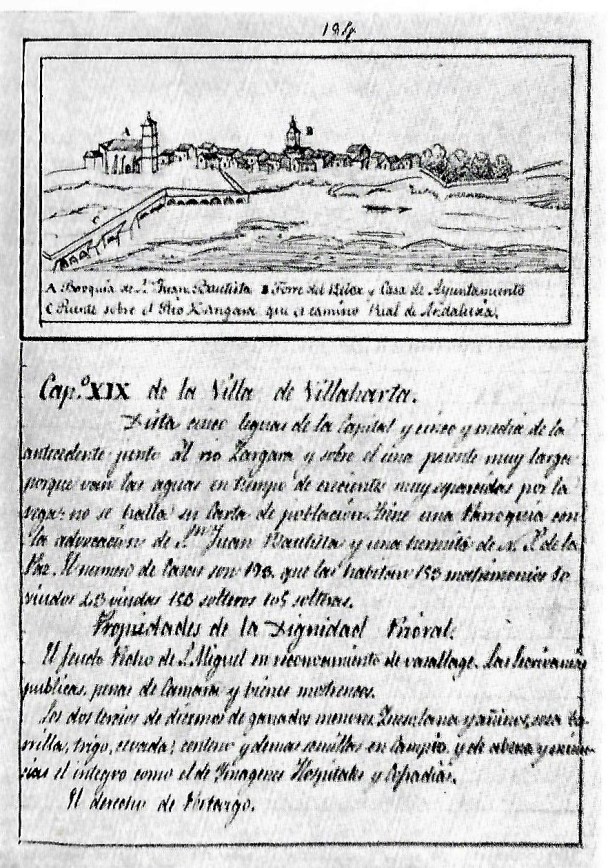 A
B
C
A Parroquia de Sn. Juan Bautista B Torre del Relox y Casa de Ayuntamiento
C Puente sobre el Rio Zangara que es camino Real de Andaluzia.
Cap.º XIX de la Villa de Villaharta.
Dista cinco leguas de la Capital y cinco y media de la
antecedente junto al rio Zargara y sobre el una puente muy larga
porque van las aguas en tiempo de crecientes muy esparcidas por la
vega: no se halla su Carta de población. Tiene una Parroquia con
la advocacion de Sn. Juan Bautista y una hermita de N. S. de la
Paz. El numero de Casas son 198. que las habitan 153 matrimonios
viudos 23 viudas 150 solteros 105 solteras.
Propiedades de la Dignidad Prioral.
El feudo Pedro de S. Miguel en reconocimiento de vasallage. Las Escrivanias
publicas, penas de Camara y bienes mostrencos.
Los dos tercios de diezmos de ganados menores, Queso, lana y añinos,
trigo, cevada, centeno y demas semillas en Campio y de abexa y
el integro como el de Ymagenes Hospitales y Cofradias.
El derecho de Portazgo.